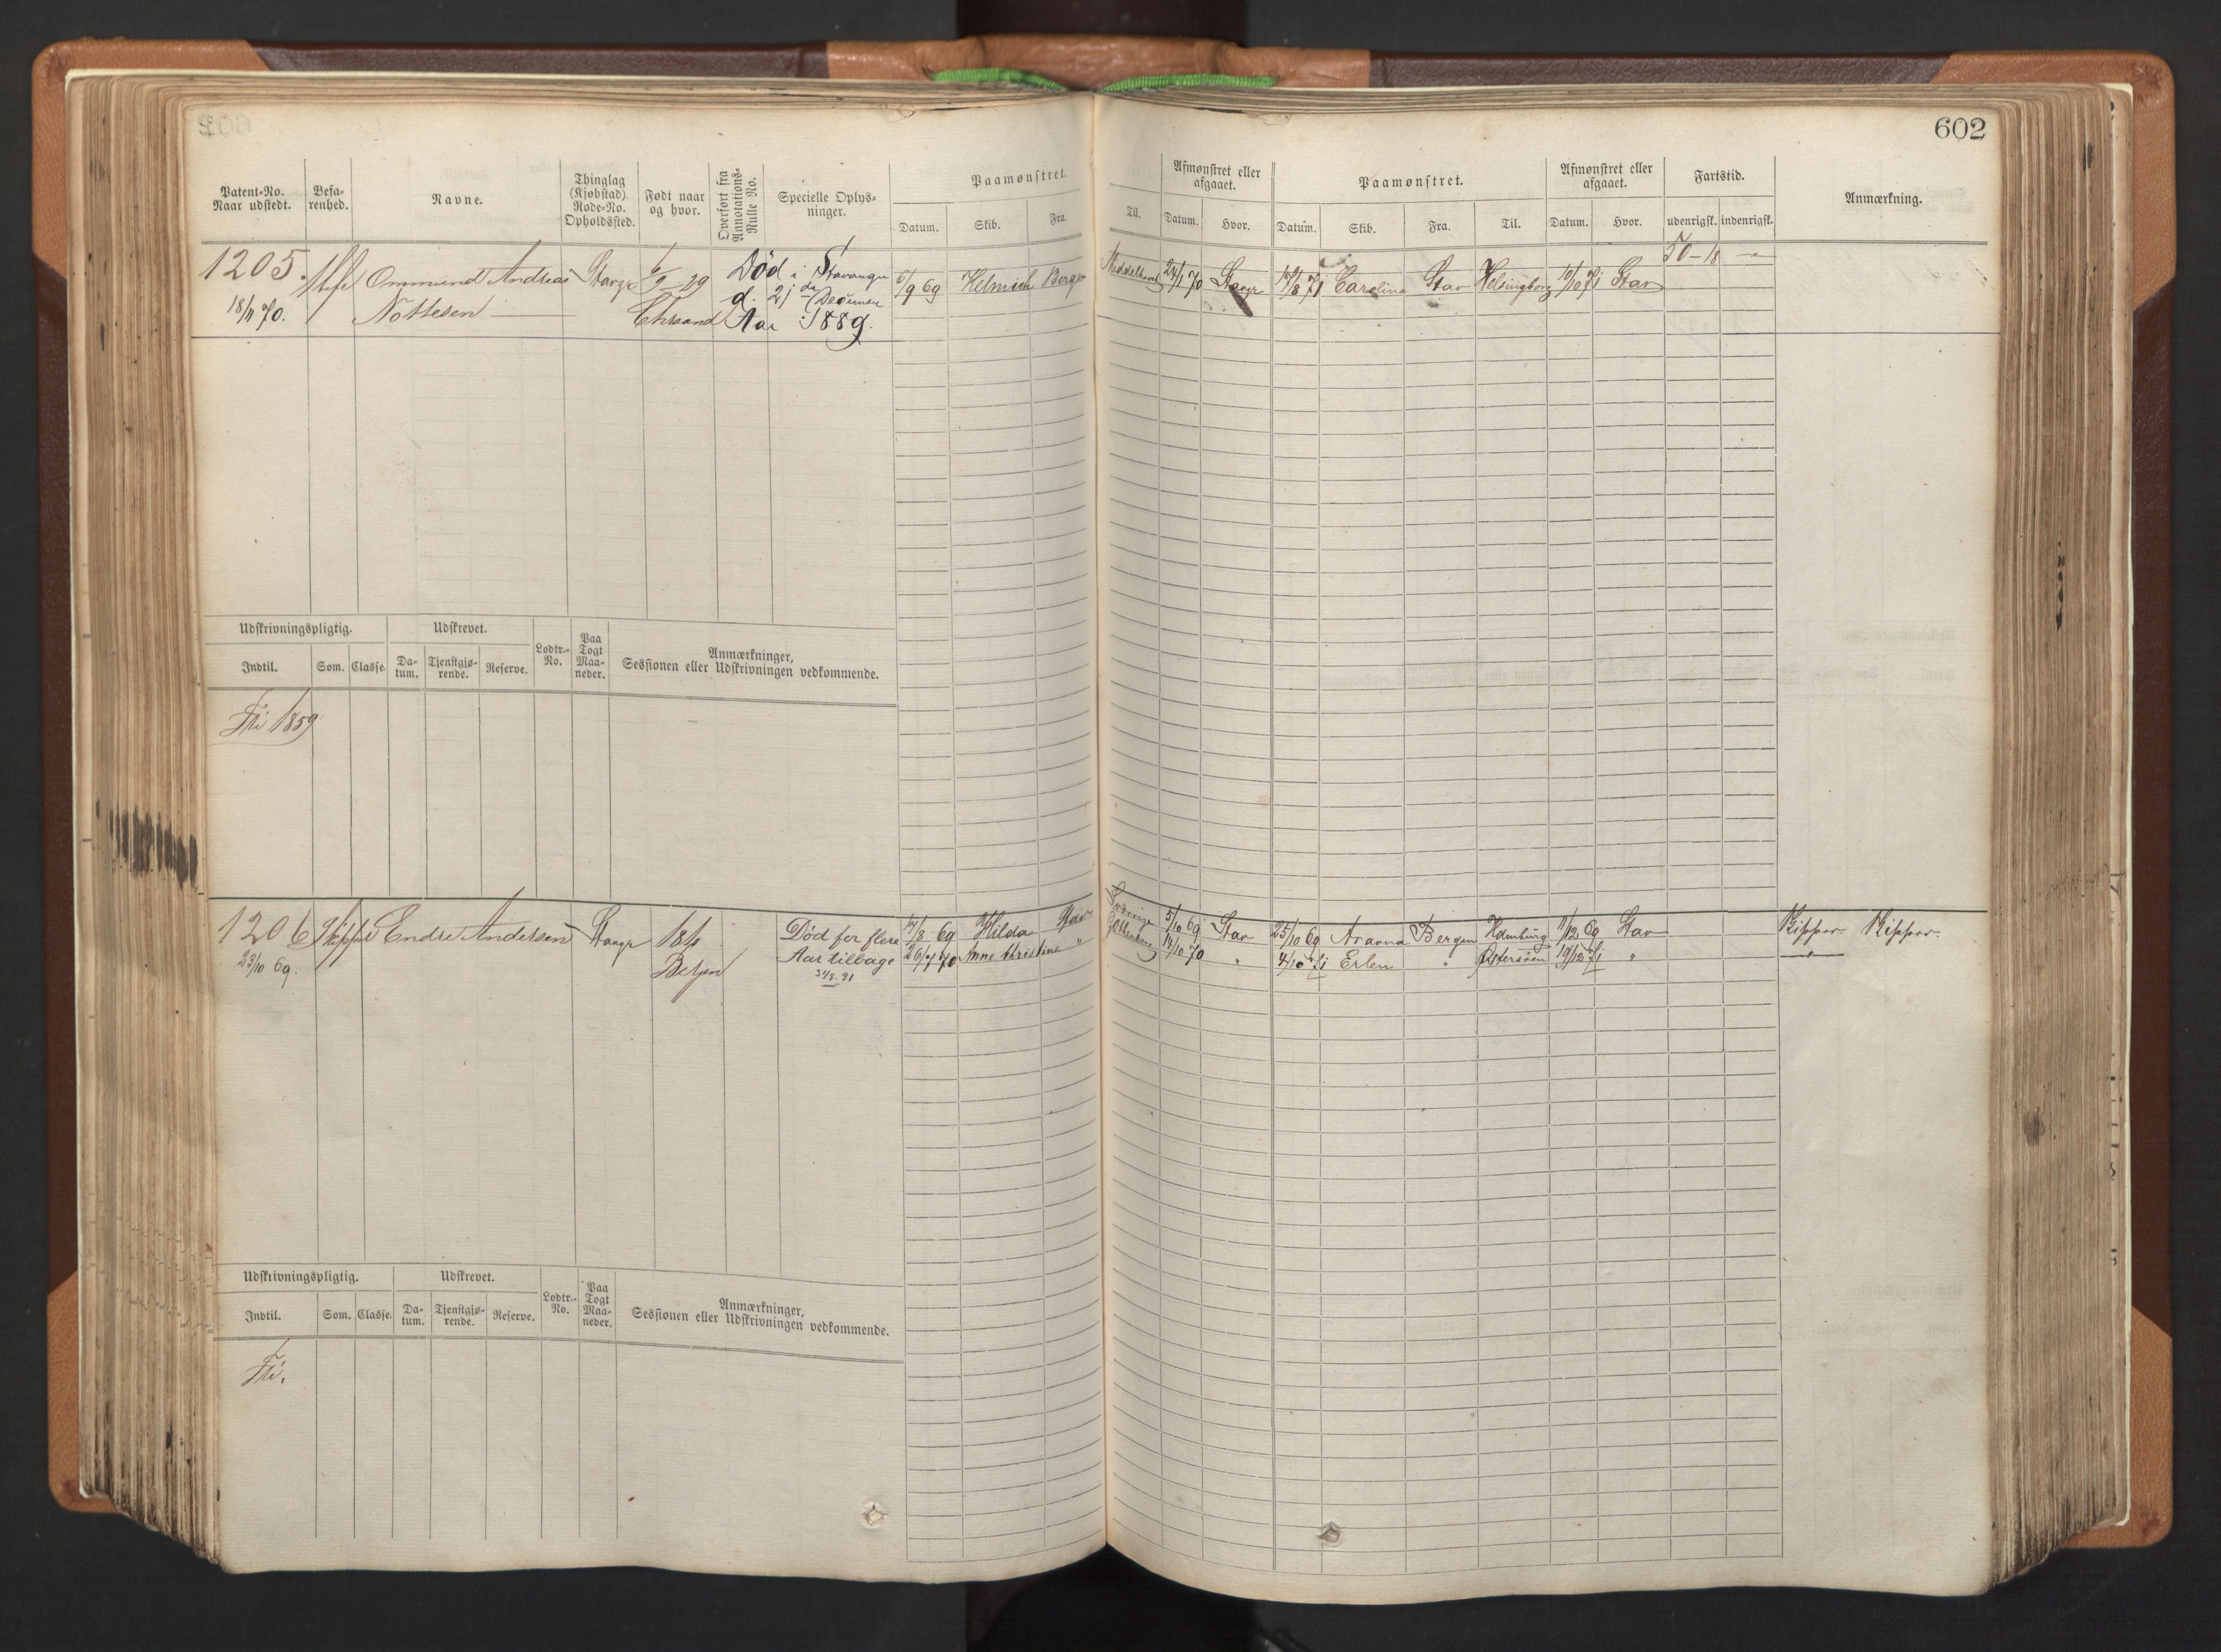 602
Patent-No. Naar udstedt.
Befa-renhed.
Navne.
Thinglag (Kjøbstad) Rode-No. Opholdssted.
Født naar og hvor.
Overført fra Annotations-Rulle No.
Specielle Oplys-ninger.
Paamønstret.
Datum. Skib. Fra. Til.
Afmønstret eller afgaaet.
Datum. Hvor.
Paamønstret.
Datum. Skib. Fra. Til.
Afmønstret eller afgaaet.
Datum. Hvor.
Fartstid.
udenrigsk. indenrigsk.
Anmærkning.
50-18 -"-
1205. Ommund Andreas Stavgr 29 Død i Stavanger 6/9 69 Helmich Bergen Middelhavet 24/1 70 Stavgr 8/71 Carolina Stav Helsingborg 10/71 Stav
18/11 70. Nottesen Chrsand d. 21 de Desember
Aar 1889.
Udskrivningspligtig. Udskrevet. Lodtr.-No. Paa Togt Maa-neder. Anmærkninger, Sessionen eller Udskrivningen vedkommende.
Indtil. Som. Classe. Da-tum. Tjenstgjø-rende. Reserve.
Fri 1859
1206 Skipper Endre Andersen Stavgr Død for flere 8 69 Hilda Stav Sverige 5/10 69 Stav 25/10 69 Bergen Hamburg 11/12 69 Stav Skipper Skipper.
23/10 69. Bergen Aar tilbage 26/7 70 Anne Christine " Gottenborg 10 70 " 4/10 71 Erlen " Østersöen 19/12 71 " "
Udskrivningspligtig. Udskrevet. Lodtr.-No. Paa Togt Maa-neder. Anmærkninger, Sessionen eller Udskrivningen vedkommende.
Indtil. Som. Classe. Da-tum. Tjenstgjø-rende. Reserve.
Fri.